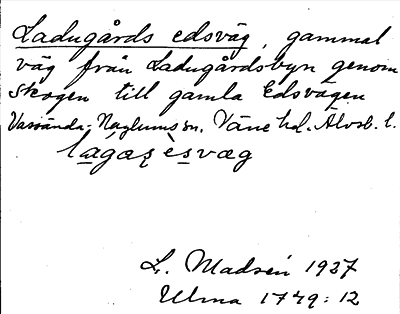 Ladugårds edsväg, gammal
väg från Ladugårdsbyn genom
skogen till gamla Edsvägen
Vassända-Naglums sn. Väne hd. Älvsb. l.
L. Madsén 1927
Ulma 1749:12